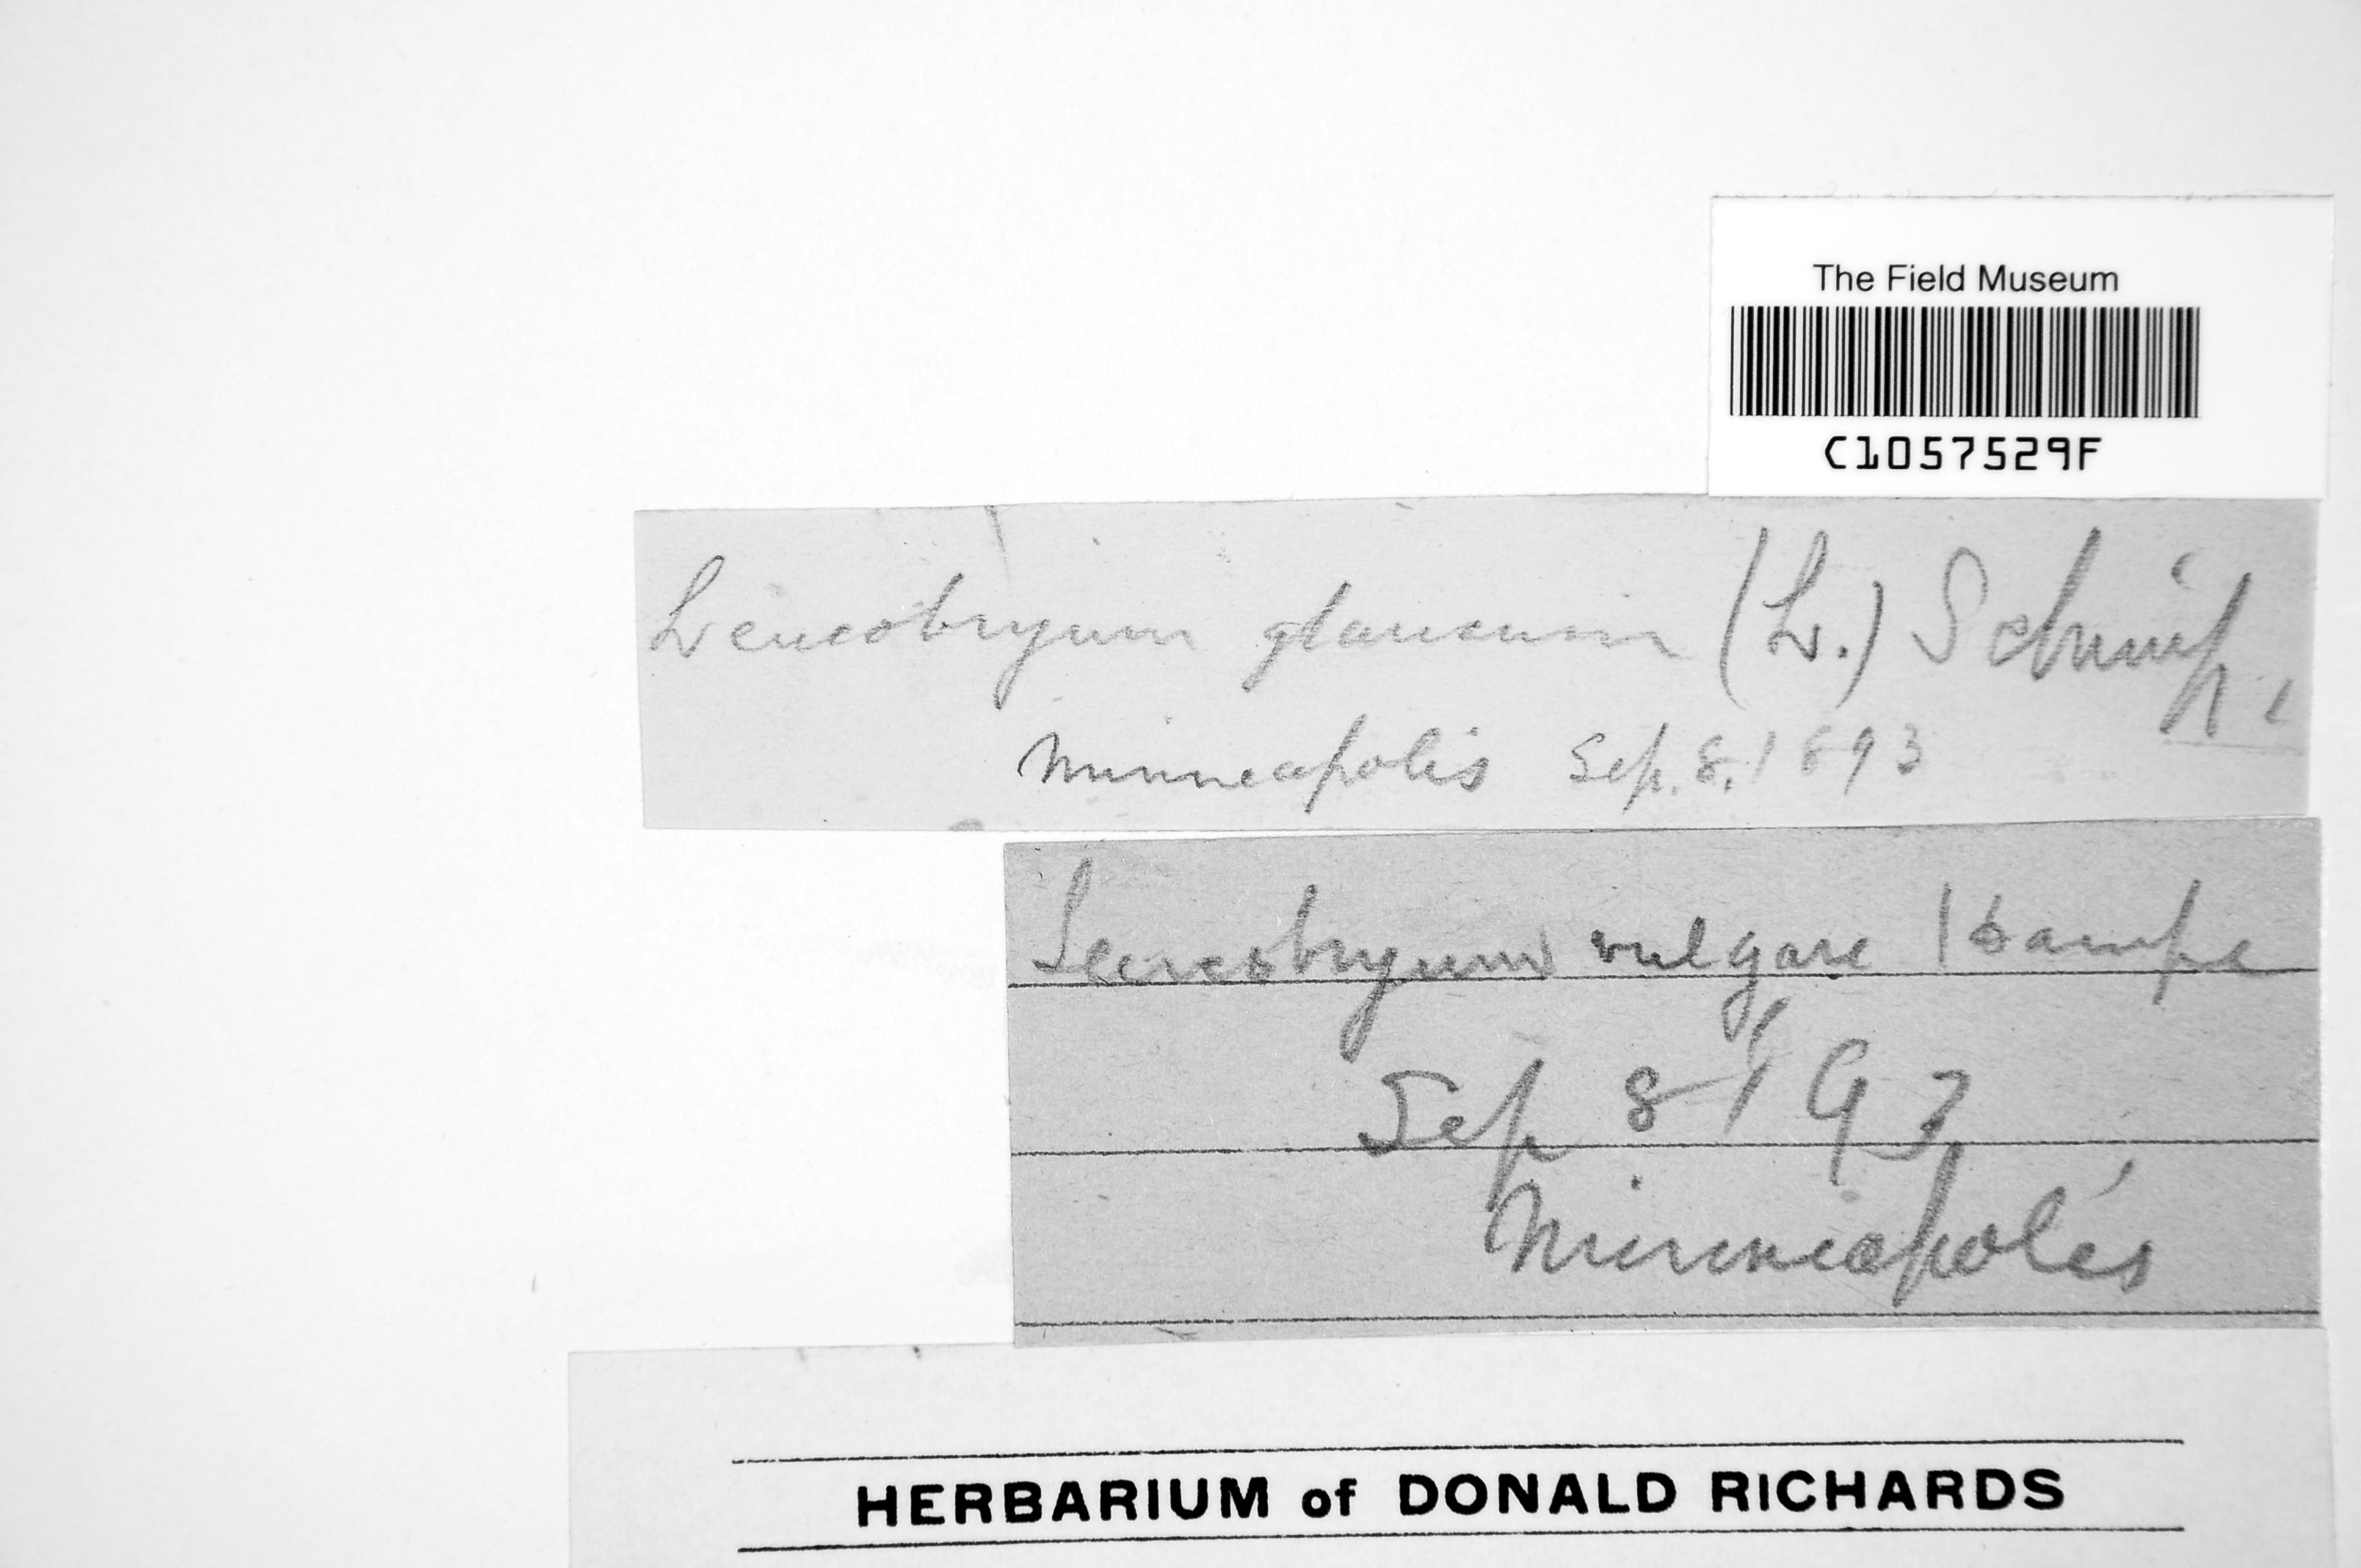 The Field Museum
C1057529F
Leucobryum glaucum (L.) Schimp.
Minneapolis Sep. 8. 1893
Leucobryum vulgare Hampe
Sep 8 / 93
Minneapolis
HERBARIUM of DONALD RICHARDS